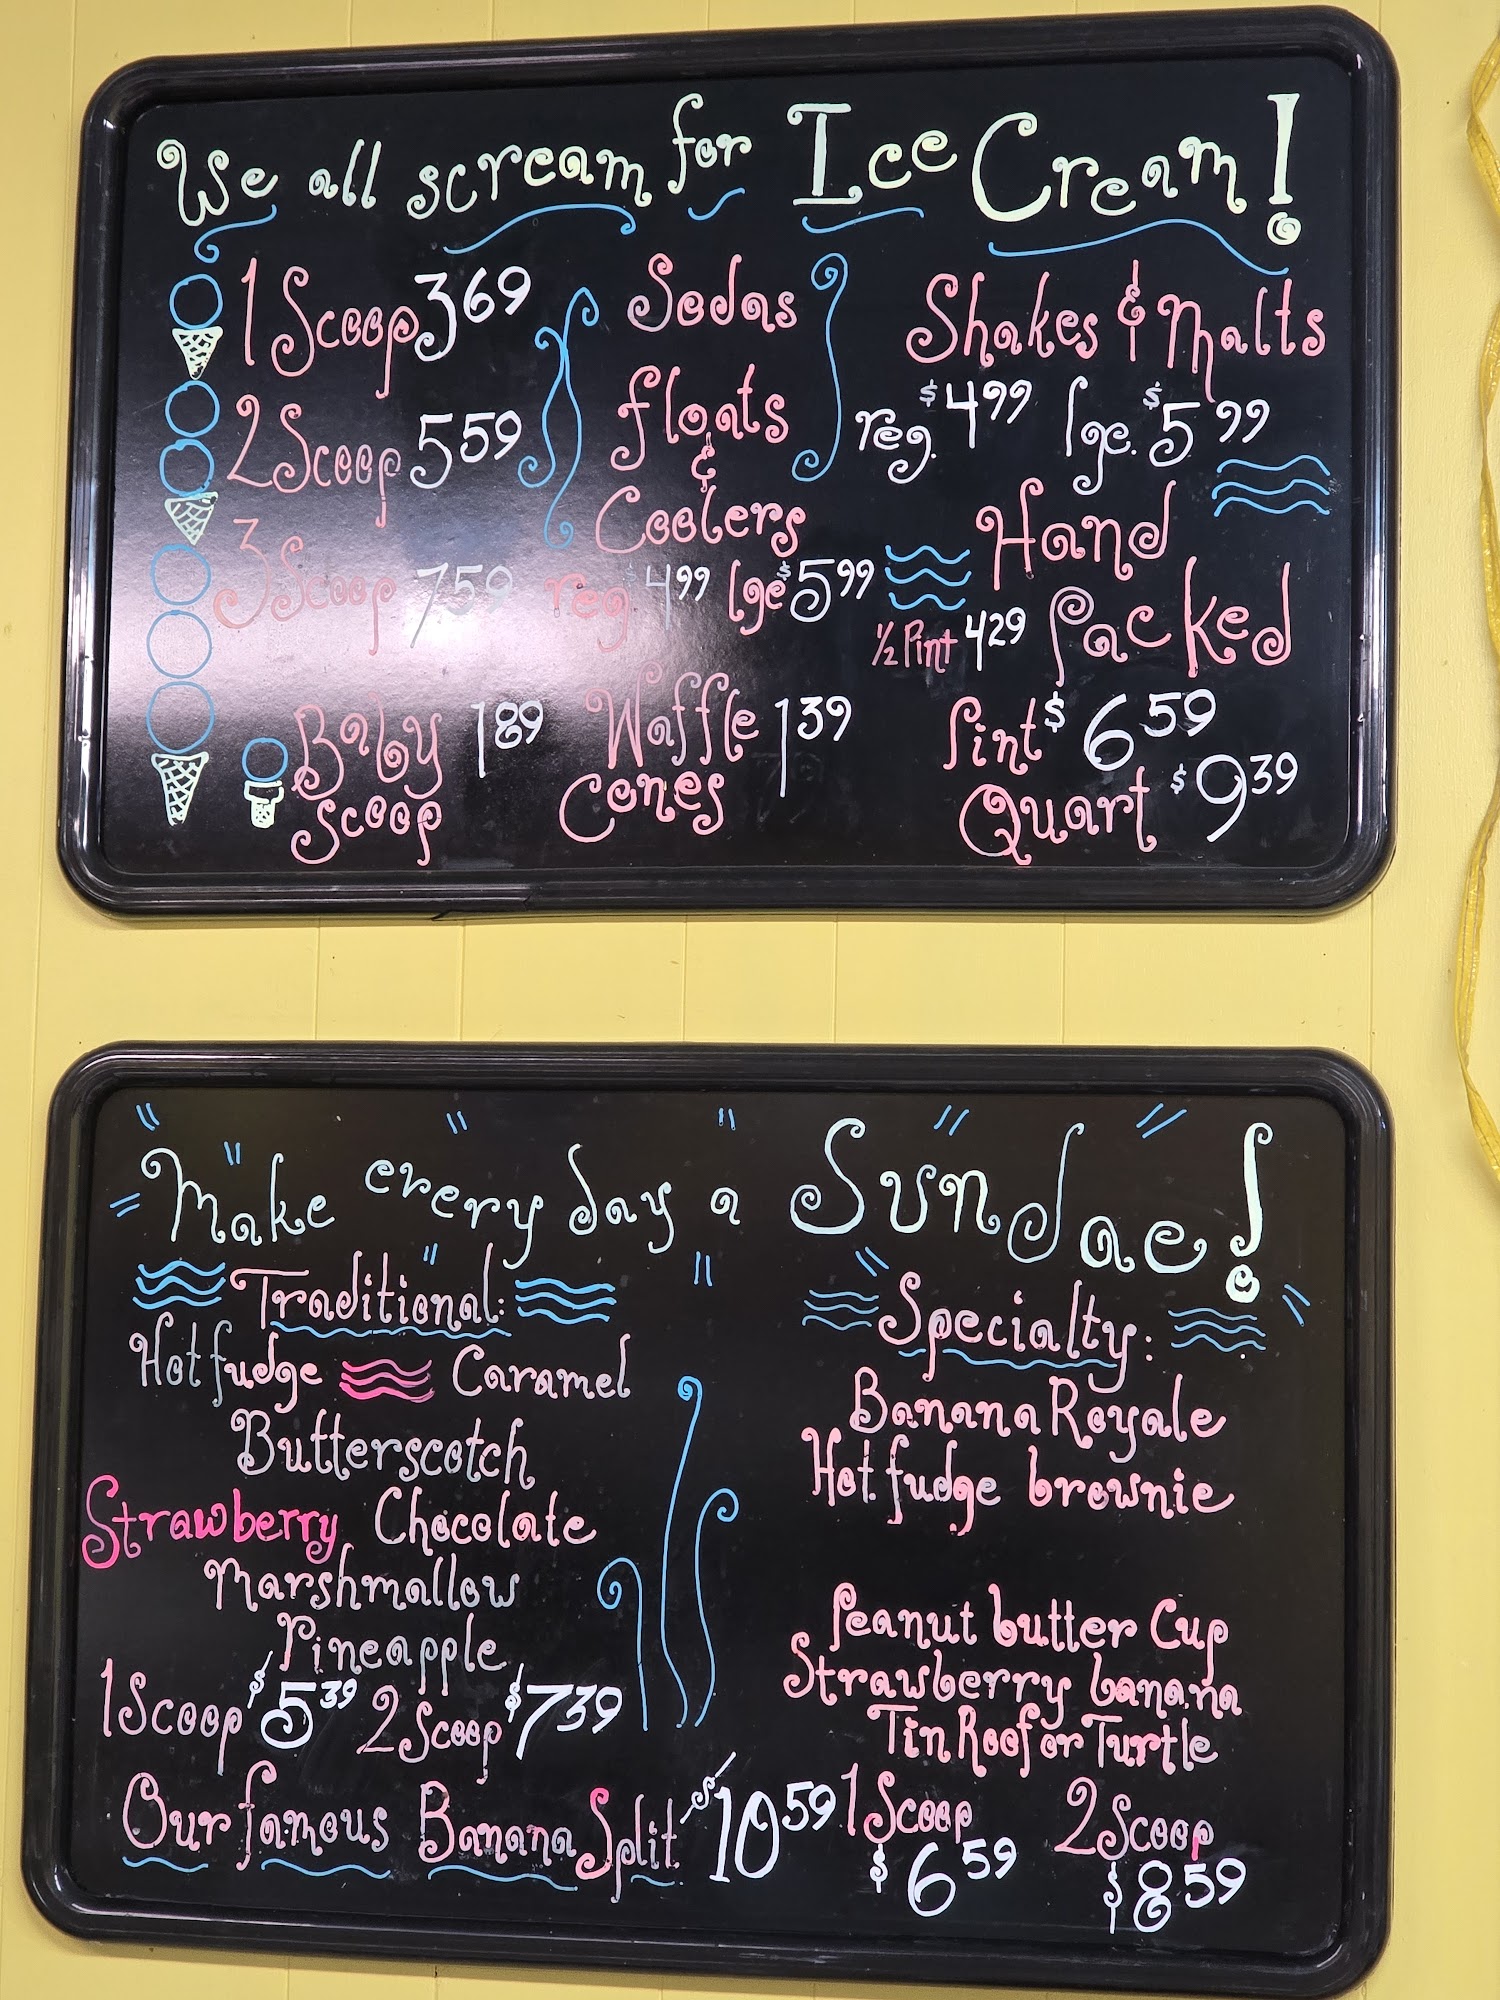 We all scream for Ice Cream!
1 Scoop 3 69
2 Scoop 5 59
3 Scoop 7 59
Baby 1 89
Scoop
Sodas
floats
&
Coolers
reg $4 99 lge $5 99
Waffle 1 39
Cones
Shakes & Malts
reg. $4 99 lge. $5 99
Hand
Packed
1/2 Pint 4 29
Pint $6 59
Quart $9 39
Make every day a Sundae!
Traditional:
Hot fudge Caramel
Butterscotch
Strawberry Chocolate
Marshmallow
Pineapple
1 Scoop $5 39 2 Scoop $7 39
Our famous Banana Split $10 59
Specialty:
Banana Royale
Hot fudge brownie
Peanut butter Cup
Strawberry banana
Tin Roof or Turtle
1 Scoop 2 Scoop
$6 59 $8 59